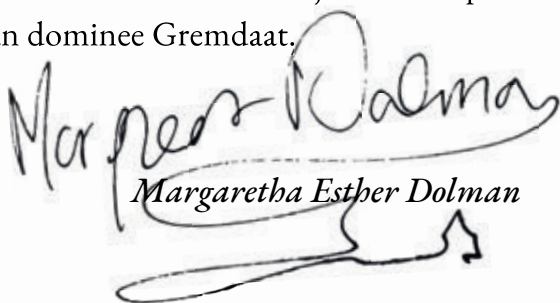 n dominee Gremdaat.
Margreet Dolman
Margaretha Esther Dolman